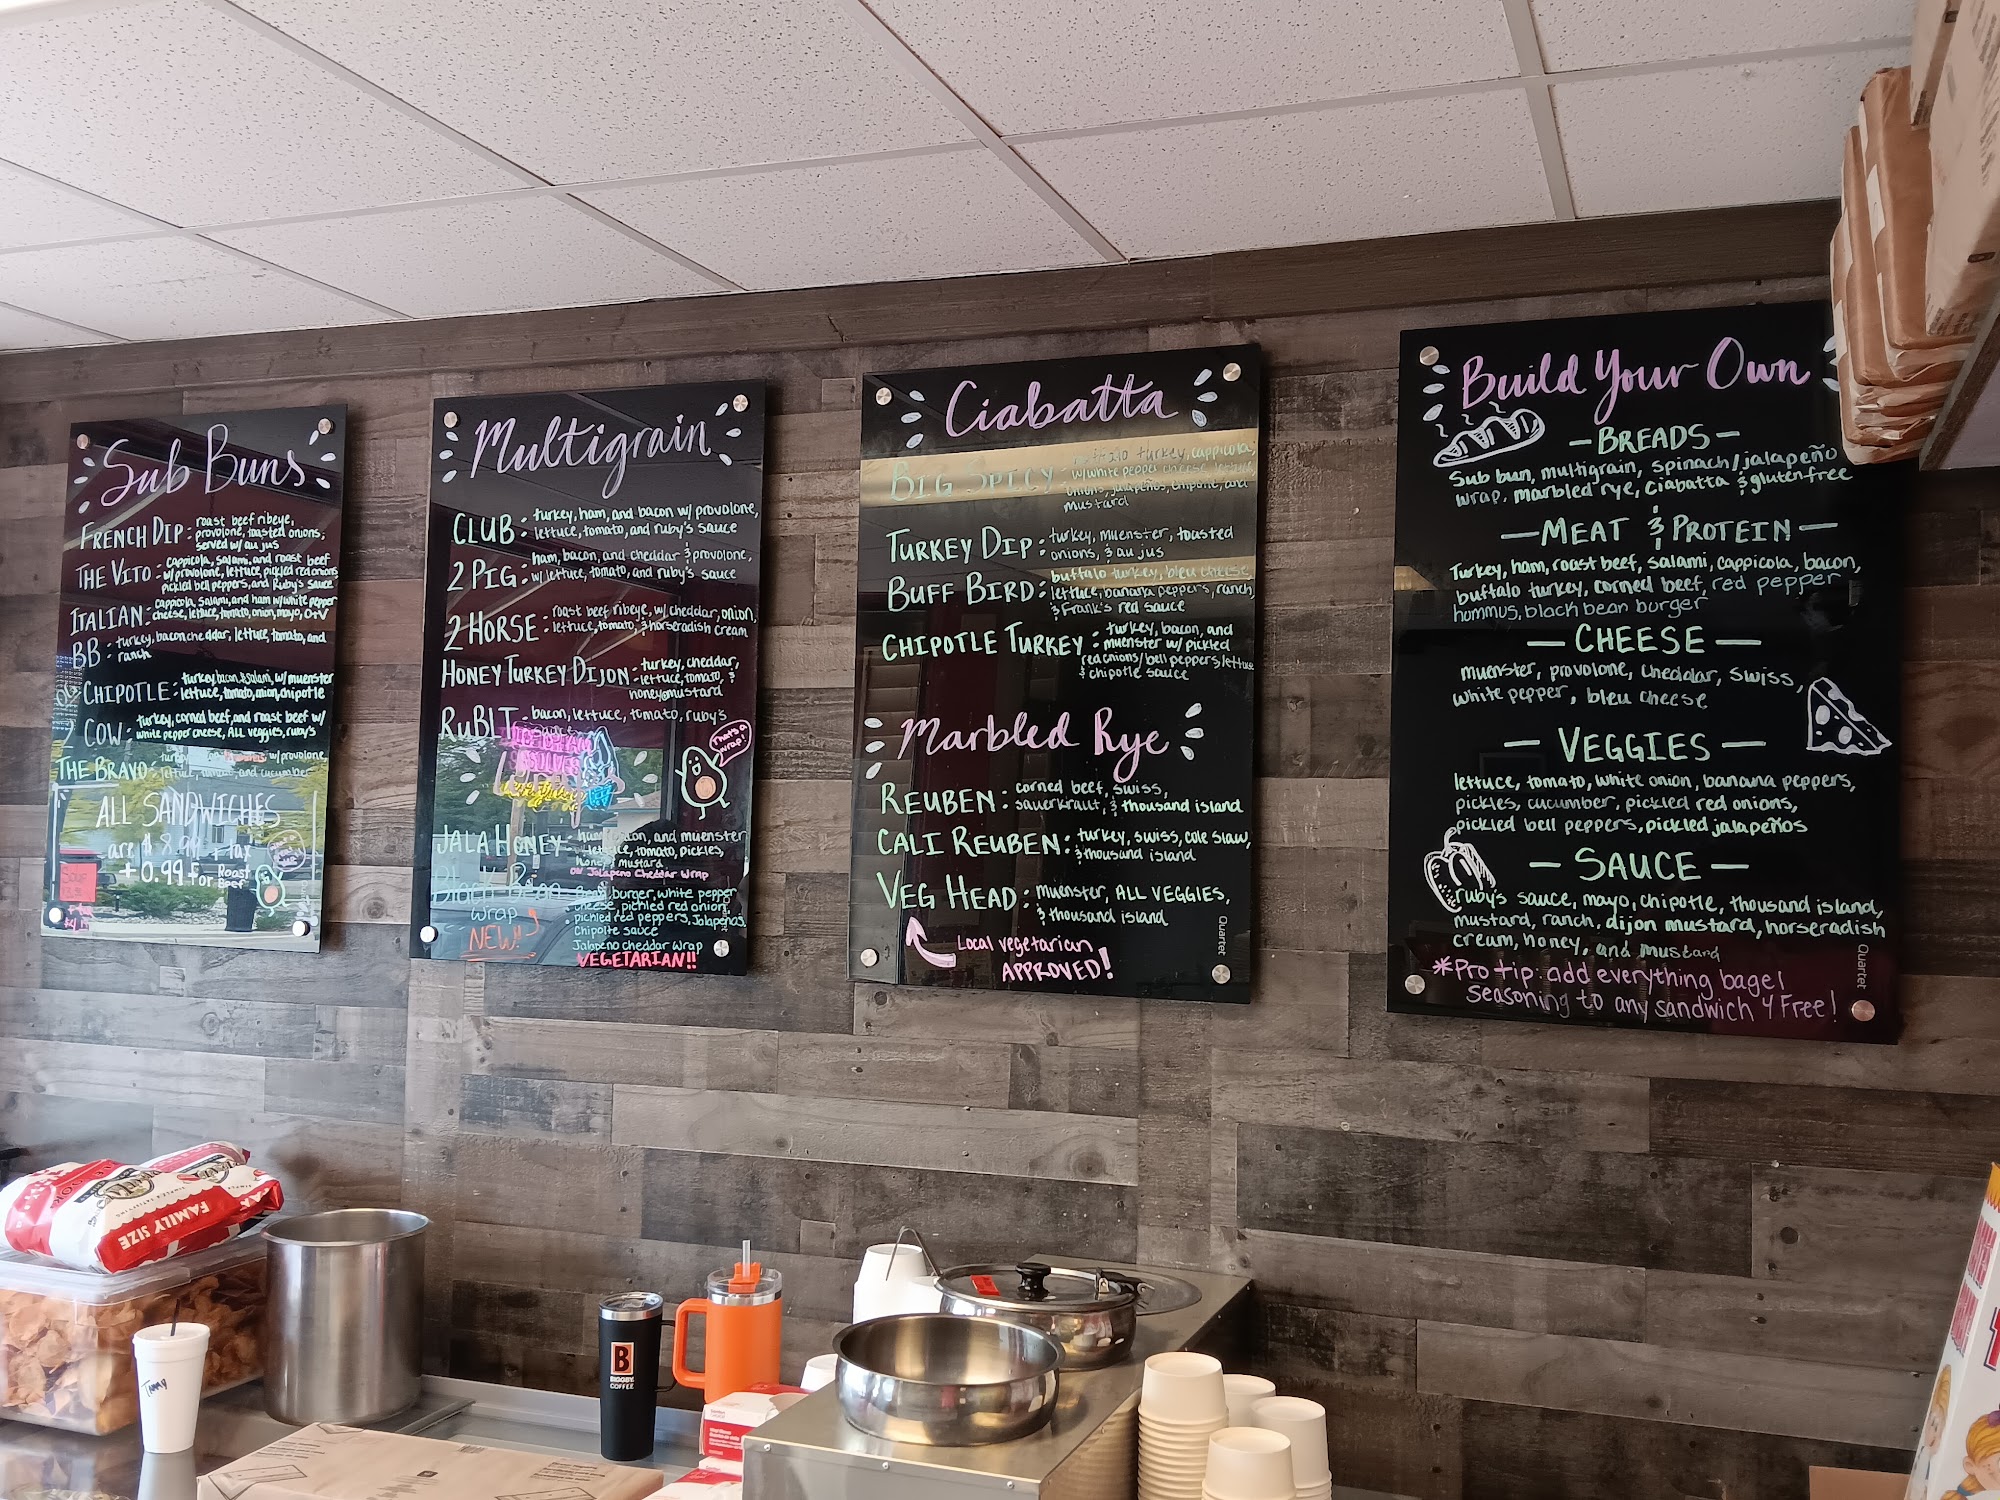 Sub Buns
FRENCH DIP: roast beef ribeye,
provolone, toasted onions,
served w/ au jus
THE VITO: cappicola, salami, and roast beef
w/provolone, lettuce, pickled red onions
pickled bell peppers, and Ruby's Sauce
ITALIAN: cappicola, salami, and ham w/white pepper
cheese, lettuce, tomato, onion, mayo, O+V
BB: turkey, bacon cheddar, lettuce, tomato, and
ranch
CHIPOTLE: turkey, bacon, & salami, w/ muenster
lettuce, tomato, onion, chipotle
2 COW: turkey, corned beef, and roast beef w/
white pepper cheese, ALL veggies, ruby's
THE BRAVO: turkey w/provolone
lettuce, tomato, and cucumber
ALL SANDWICHES
are $8.99 + tax
+0.99 for Roast
Beef
SOUP
Multigrain
CLUB: turkey, ham, and bacon w/ provolone,
lettuce, tomato, and ruby's sauce
2 PIG: ham, bacon, and cheddar & provolone,
w/ lettuce, tomato, and ruby's sauce
2 HORSE: roast beef ribeye, w/ cheddar, onion,
lettuce, tomato, & horseradish cream
HONEY TURKEY DIJON: turkey, cheddar,
lettuce, tomato, &
honeymustard
RUBLT: bacon, lettuce, tomato, ruby's
sauce
That's a
wrap!
JALA HONEY: ham, bacon, and muenster
lettuce, tomato, pickles,
honey mustard
on Jalapeno Cheddar Wrap
Black Bean: bean burger, white pepper
wrap cheese, pickled red onion,
NEW! pickled red peppers, Jalapeños,
Chipolte sauce
Jalapeno cheddar wrap
VEGETARIAN!!
Ciabatta
BIG SPICY: buffalo turkey, cappicola,
w/white pepper cheese, lettuce,
onions, jalapeños, chipotle, and
mustard
TURKEY DIP: turkey, muenster, toasted
onions, & au jus
BUFF BIRD: buffalo turkey, bleu cheese,
lettuce, banana peppers, ranch,
& Frank's red sauce
CHIPOTLE TURKEY: turkey, bacon, and
muenster w/ pickled
red onions/bell peppers, lettuce
& chipotle sauce
Marbled Rye
REUBEN: corned beef, swiss,
sauerkraut, & thousand island
CALI REUBEN: turkey, swiss, cole slaw,
& thousand island
VEG HEAD: muenster, ALL VEGGIES,
& thousand island
Local vegetarian
APPROVED!
Quartet
Build Your Own
-BREADS-
Sub bun, multigrain, spinach/jalapeño
wrap, marbled rye, ciabatta & glutenfree
-MEAT & PROTEIN-
Turkey, ham, roast beef, salami, cappicola, bacon,
buffalo turkey, corned beef, red pepper
hummus, black bean burger
-CHEESE-
muenster, provolone, cheddar, swiss,
white pepper, bleu cheese
-VEGGIES-
lettuce, tomato, white onion, banana peppers,
pickles, cucumber, pickled red onions,
pickled bell peppers, pickled jalapeños
-SAUCE-
ruby's sauce, mayo, chipotle, thousand island,
mustard, ranch, dijon mustard, horseradish
cream, honey, and mustard
*Pro tip: add everything bagel
seasoning to any sandwich 4 Free!
Quartet
FAMILY SIZE
Tammy
B
BIGGBY
COFFEE